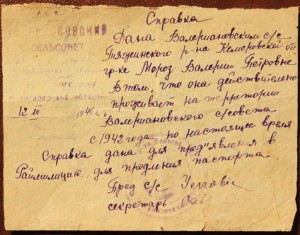 Справка
Дана Валериановским с/с
СЕЛЬСОВЕТ
Тяжинского р-на Кемеровской
гр-ке Мороз Валерии Петровне
в том, что она действительно
проживает на территории
12 III 194
Валериановского с/совета
с 1942 года по настоящее время
Справка дана для предъявления в
Раймилицию для продления паспорта
Пред с/с
секретарь